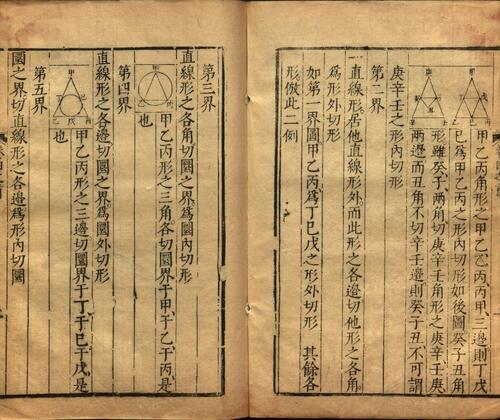 丙角形之甲乙乙丙丙甲三邊則丁戊
巳爲甲乙丙之形內切形如後圖癸子丑角
形雖癸子兩角切庚辛壬角形之庚辛壬庚
兩邊而丑角不切辛壬邊則癸子丑不可謂
庚辛壬之形內切形
第二界
直線形居他直線形外而此形之各邊切他形之各角
爲形外切形
如第一界圖甲乙丙爲丁巳戊之形外切形 其餘各
形倣此二例
第三界
直線形之各角切圜之界爲圜內切形
甲乙丙形之三角各切圜界于甲于乙于丙是
也
第四界
直線形之各邊切圜之界爲圜外切形
甲乙丙形之三邊切圜界于丁于巳于戊是
也
第五界
圜之界切直線形之各邊爲形內切圜